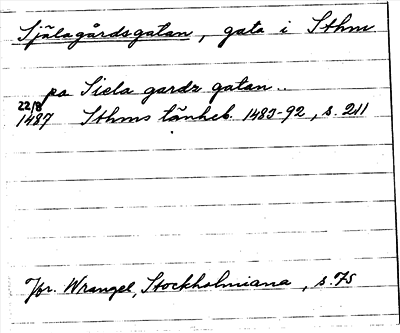 Själagårdsgatan, gata i Sthm
pa Siela gardz gatan..
22/8
1487 Sthms tänkeb. 1483-92, s. 211
Jfr. Wrangel, Stockholmiana, s. 75